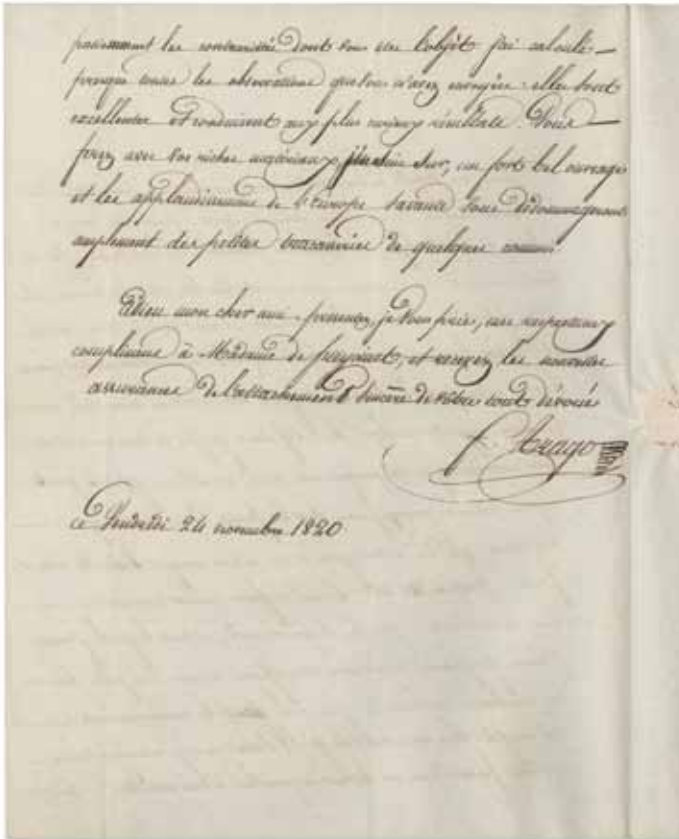 patiemment les contrariétés dont vous êtes l'objet j'ai calculé —
presque toutes les observations que vous m'avez envoyées : elles sont
excellentes et conduisent aux plus curieux résultats. Vous —
ferez avec vos riches matériaux, j'en suis sur, un fort bel ouvrage
et les applaudissemens de l'Europe savante vous dédommageront
amplement des petites tracasseries de quelques
Adieu mon cher ami, presentez, je vous prie, mes respectueux
complimens à Madame de freycinet, et recevez les nouvelles
assurances de l'attachement sincère de votre tout dévoué
f. Arago
Ce Vendredi 24 novembre 1820